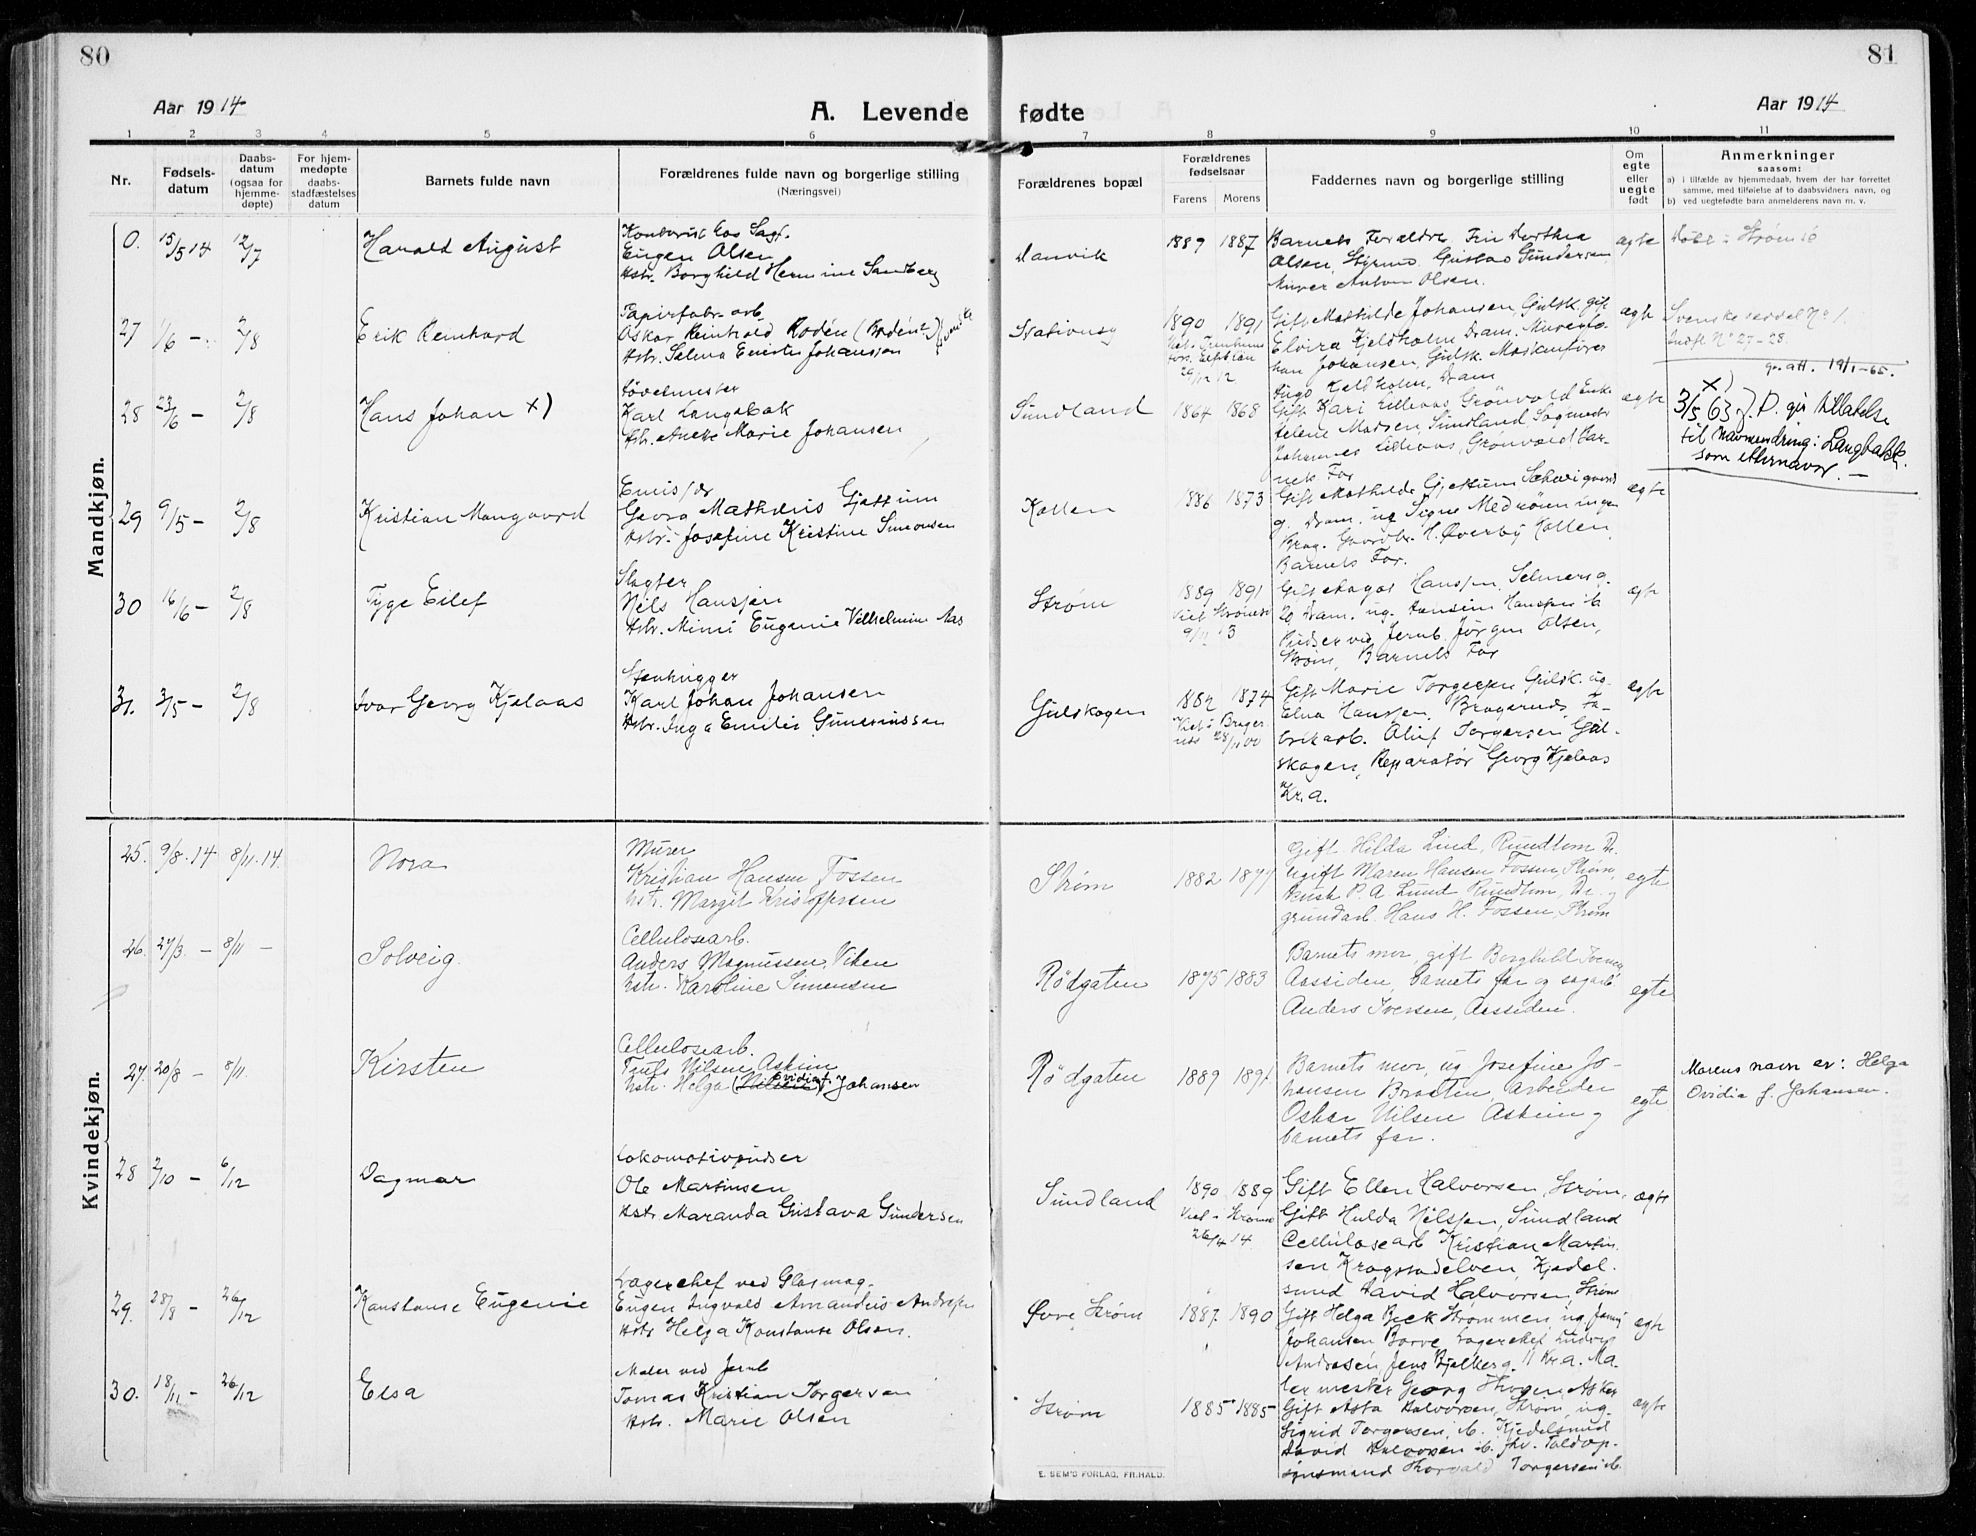 80
81
Aar 1914
A. Levende fødte
Aar 1914
1 2 3 4 5 6 7 8 9 10 11
Nr.
Fødselsdatum
Daabsdatum (ogsaa for hjemmedøpte)
For hjemmedøpte daabsstadfæstelses datum
Barnets fulde navn
Forældrenes fulde navn og borgerlige stilling (Næringsvei)
Forældrenes bopæl
Forældrenes fødselsaar
Farens Morens
Faddernes navn og borgerlige stilling
Om egte eller uegte født
Anmerkninger
saasom:
a) i tilfælde av hjemmedaab, hvem der har forrettet samme, med tilføielse af to daabsvidners navn, og
b) ved uegtefødte barn anmelderens navn m. v.
Mandkjøn.
0. 15/5 14 12/7 Harald August
Eugen Olsen
Hstr. Borghild Hermine Sandberg
Danvik 1889 1887
Barnets Forældre, Frk Dorthea
Olsen, Styrmd. Gustav Gundersen
Murer Anton Olsen.
ægte
Døbt i Strømsø
27 1/6 — 2/8 Erik Reinhard
Papirfabr. arb.
Oskar Reinhold Rodén
Hstr. Selma Johanssen
1890 1891
29/12 12
Gift Mathilde Johansen, Gulsk. gift
Elvira Kjeldholm Dram.
Johansen, Gulsk. Maskinfører
Hugo Kjeldholm, Dram
ægte
Svenske seddel No 1.
Indf. No 27-28.
gr. att. 19/1-65.
28 23/6 — 2/8 Hans Johan x)
Karl Langebak
Hstr. Anette Marie Johansen
Sundland 1864 1868
Gift Kari Lillevas Grønvold Enke
Helene Madsen, Sundland, Sagmester
Johannes Lillevas, Grønvold, Barnets Far
ægte
x)
3/5 63 J.D. gir tillatelse
til navnendring: Langbakk
som etternavn. —
29 9/5 — 2/8 Kristian Mangaard
Georg Mathæus Gjettum
Hstr. Josefine Kristine Simonsen
Kollen 1886 1873
Gift Mathilde Gjettum Schwigaards
g. Dram. ug Signe Medrøningen
Brag. Gaardbr. H. Øverby Kollen,
Barnets Far.
ægte
30 16/6 — 2/8 Tyge Eilef
Slagter
Nils Hanssen
Hstr. Mimi Eugenie Vilhelmine Aas
Strøm 1889 1891
9/11 13
Gift Aagot Hanssen, Selmersg.
Jørgen Olsen,
Strøm, Barnets Far
ægte
31. 3/5 — 2/8 Ivar Georg Kjelaas
Stenhugger
Karl Johan Johansen
Hstr. Inga Emilie Gunerinssen
Gulskogen 1882 1874
Viet i Bragernes 28/11 00
Gift Marie Torgersen Gulsk. ug.
Elna Hanssen, Bragernes, Fabrikarb. Oluf Torgersen Gulskogen, Reparatør Georg Kjelaas
Kr.a.
ægte
Kvindekjøn.
25. 9/8 14 8/11 14. Nora
Murer
Kristian Hansen Fossen
hstr. Margit Kristoffersen
Strøm 1882 1877
Gift Hilda Lind, Rundtom Dr.
Ugift Maren Hansen Fossen, Strøm,
P. A. Lund Rundtom, Dr. og
grundarb. Hans H. Fossen, Strøm
egte
26. 27/3 — 8/11 — Solveig.
Cellulosearb.
Anders Magnussen Viken
hstr. Karoline Simensen
Rødgaten 1875 1883
Barnets mor, gift Borghild Iversen
Aassiden, barnets far og sagarb
Anders Iversen, Aassiden.
egte
27. 20/8 — 8/11. Kirsten
Cellulosearb.
Truls Nilsen Askim
hstr. Helga (Ovidia f.) Johansen
Rødgaten 1889 1891
Barnets mor, ug Josefine Johansen Braaten, arbeider
Oskar Nilsen Askim og
barnets far.
egte
Morens navn er: Helga
Ovidia f. Johansen.
28 2/10 — 6/12 Dagmar
Lokomotivpudser
Ole Martinsen
Hstr. Maranda Gustava Gundersen
Sundland 1890 1889
Viet i Strømsø
26/4 14
Gift Ellen Halvorsen, Strøm,
Gift Hulda Nilsen, Sundland
Cellulosearb Kristian Martinsen, Kragstadelven, Kjedelsmed David Halvorsen, Strøm
ægte
29. 28/8 — 26/12 Konstanse Eugenie
Lagerchef ved Glasmag.
Eugen Ingvald Amandus Andresen
Hstr Helga Konstanse Olsen.
Øvre Strøm 1887. 1890
Gift Helga Beck Strømmen, ug Jenny
Johansen Borve, Lagerchef Ludvig
Andresen, Jens Bjelkesg. 11 Kr.a. Malermester Georg Skogen Asker
ægte
30. 18/11 — 26/12 Elsa
Maler ved Jernb
Tomas Kristian Torgersen
Hstr. Marie Olsen
Strøm 1885 1885
Gift Asta Halvorsen, Strøm, ug.
Sigrid Torgersen, ib. Kjedelsmed
David Halvorsen ib. fhv. Toldopsynsmand Thorvald Torgersen ib.
ægte
E. SEM'S FORLAG, FR.HALD.